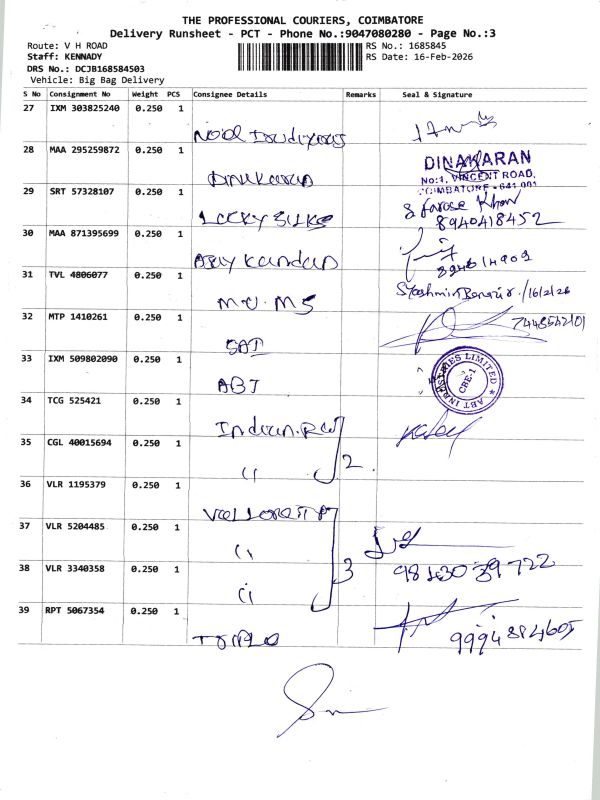 THE PROFESSIONAL COURIERS, COIMBATORE
Delivery Runsheet - PCT - Phone No.:9047080280 - Page No.:3
Route: V H ROAD
Staff: KENNADY
DRS No.: DCJB168584503
Vehicle: Big Bag Delivery
RS No.: 1685845
RS Date: 16-Feb-2026
S No Consignment No Weight PCS Consignee Details Remarks Seal & Signature
27 IXM 303825240 0.250 1
Noel
28 MAA 295259872 0.250 1
Dinakaran
DINAKARAN
No:1, VINCENT ROAD,
COIMBATORE - 641 001
29 SRT 57328107 0.250 1
LUCKY SILKS
8940418452
30 MAA 871395699 0.250 1
31 TVL 4806077 0.250 1
M.U.MS
/16/2/26
32 MTP 1410261 0.250 1
SAI
7448542101
33 IXM 509802090 0.250 1
ABT
ABT INDUSTRIES LIMITED
CBE-1
34 TCG 525421 0.250 1
Indian.
35 CGL 40015694 0.250 1
11
2
36 VLR 1195379 0.250 1
37 VLR 5204485 0.250 1
11
38 VLR 3340358 0.250 1
11
3
9843039722
39 RPT 5067354 0.250 1